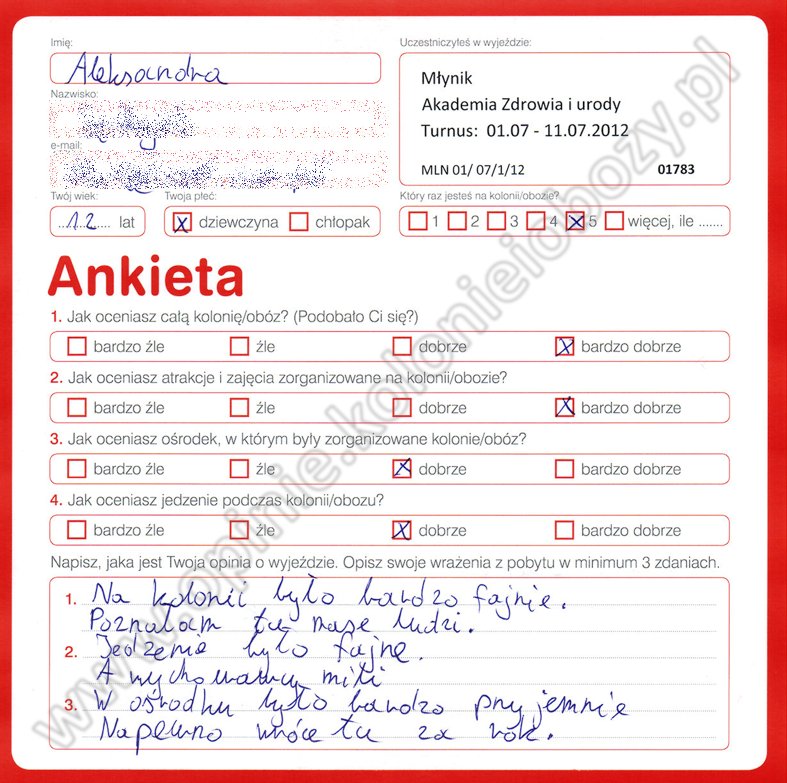 Imię:
Aleksandra
Nazwisko:
e-mail:
Twój wiek:
12 lat
Twoja płeć:
dziewczyna chłopak
Uczestniczyłeś w wyjeździe:
Młynik
Akademia Zdrowia i urody
Turnus: 01.07 - 11.07.2012
MLN 01/ 07/1/12 01783
Który raz jesteś na kolonii/obozie?
1 2 3 4 5 więcej, ile .......
Ankieta
1. Jak oceniasz całą kolonię/obóz? (Podobało Ci się?)
bardzo źle źle dobrze bardzo dobrze
2. Jak oceniasz atrakcje i zajęcia zorganizowane na kolonii/obozie?
bardzo źle źle dobrze bardzo dobrze
3. Jak oceniasz ośrodek, w którym były zorganizowane kolonie/obóz?
bardzo źle źle dobrze bardzo dobrze
4. Jak oceniasz jedzenie podczas kolonii/obozu?
bardzo źle źle dobrze bardzo dobrze
Napisz, jaka jest Twoja opinia o wyjeździe. Opisz swoje wrażenia z pobytu w minimum 3 zdaniach.
1. Na kolonii było bardzo fajnie.
Poznałam tu masę ludzi.
2. Jedzenie było fajne.
A wychowawcy mili
3. W ośrodku było bardzo przyjemnie
Napewno wrócę tu za rok.
www.opinie.kolonieiobozy.pl